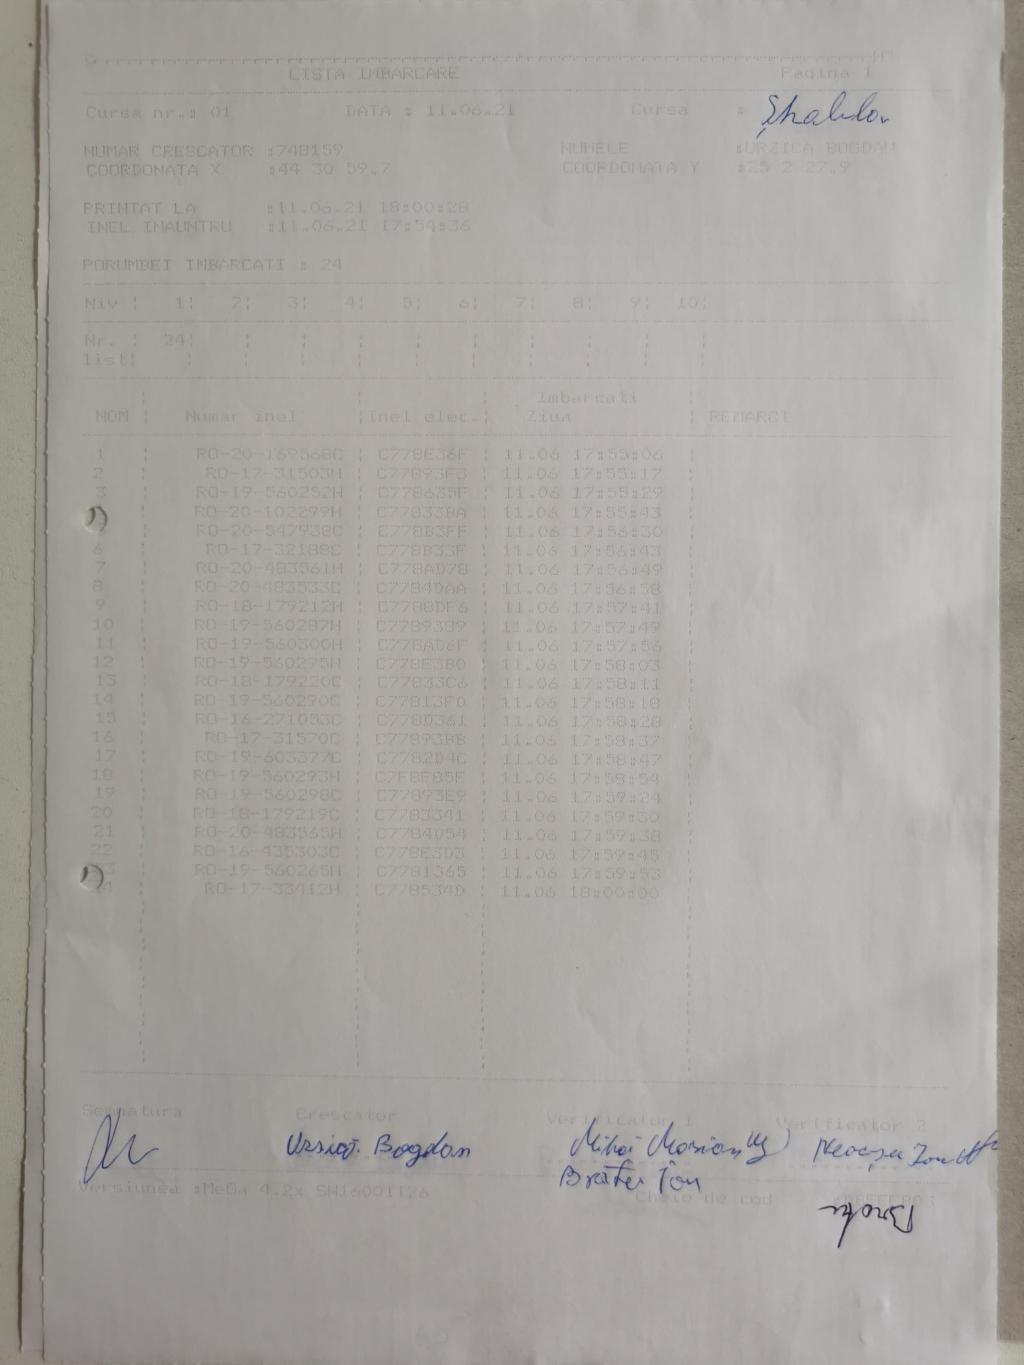 LISTA IMBARCARE Pagina 1
Cursa nr.: 01 DATA : 11.06.21 Cursa :
NUMAR CRESCATOR :748159 NUMELE :URZICA BOGDAN
COORDONATA X :44 30 59.7 COORDONATA Y :25 2 27.9
PRINTAT LA :11.06.21 18:00:28
INEL INAUNTRU :11.06.21 17:54:36
PORUMBEI IMBARCATI : 24
Niv : 1: 2: 3: 4: 5: 6: 7: 8: 9: 10:
Nr. : 24:
list:
Imbarcati
NOM : Numar inel :Inel elec.: Ziua : REMARCI
1 RO-20-169568C C778E36F 11.06 17:55:06
2 RO-17-31503H C77893F3 11.06 17:55:17
3 RO-19-560252H C778635F 11.06 17:55:29
RO-20-102299H C77833BA 11.06 17:55:43
RO-20-547938C C778B3FF 11.06 17:56:30
6 RO-17-32188C C778B33F 11.06 17:56:43
7 RO-20-483561H C778AD78 11.06 17:56:49
8 RO-20-483533C C7784DAA 11.06 17:56:58
9 RO-18-179212H C7788DF6 11.06 17:57:41
10 RO-19-560287H C7789389 11.06 17:57:49
11 RO-19-560300H C778AD6F 11.06 17:57:56
12 RO-19-560295H C778E380 11.06 17:58:03
13 RO-18-179220C C77833C6 11.06 17:58:11
14 RO-19-560290C C77813FD 11.06 17:58:18
15 RO-16-271053C C778D361 11.06 17:58:28
16 RO-17-31570C C77893BB 11.06 17:58:37
17 RO-19-603377C C7782D4C 11.06 17:58:47
18 RO-19-560293H C7F8F85F 11.06 17:58:54
19 RO-19-560298C C77893E9 11.06 17:59:24
20 RO-18-179219C C7783341 11.06 17:59:30
21 RO-20-483565H C7784D54 11.06 17:59:38
22 RO-16-435303C C778E3D3 11.06 17:59:45
RO-19-560265H C7781365 11.06 17:59:53
RO-17-33412H C778534D 11.06 18:00:00
Semnatura Crescator Verificator 1 Verificator 2
Bogdan Mihai Marian
Ion
Versiunea :MeGa 4.2x SN16001126 Cheie de cod